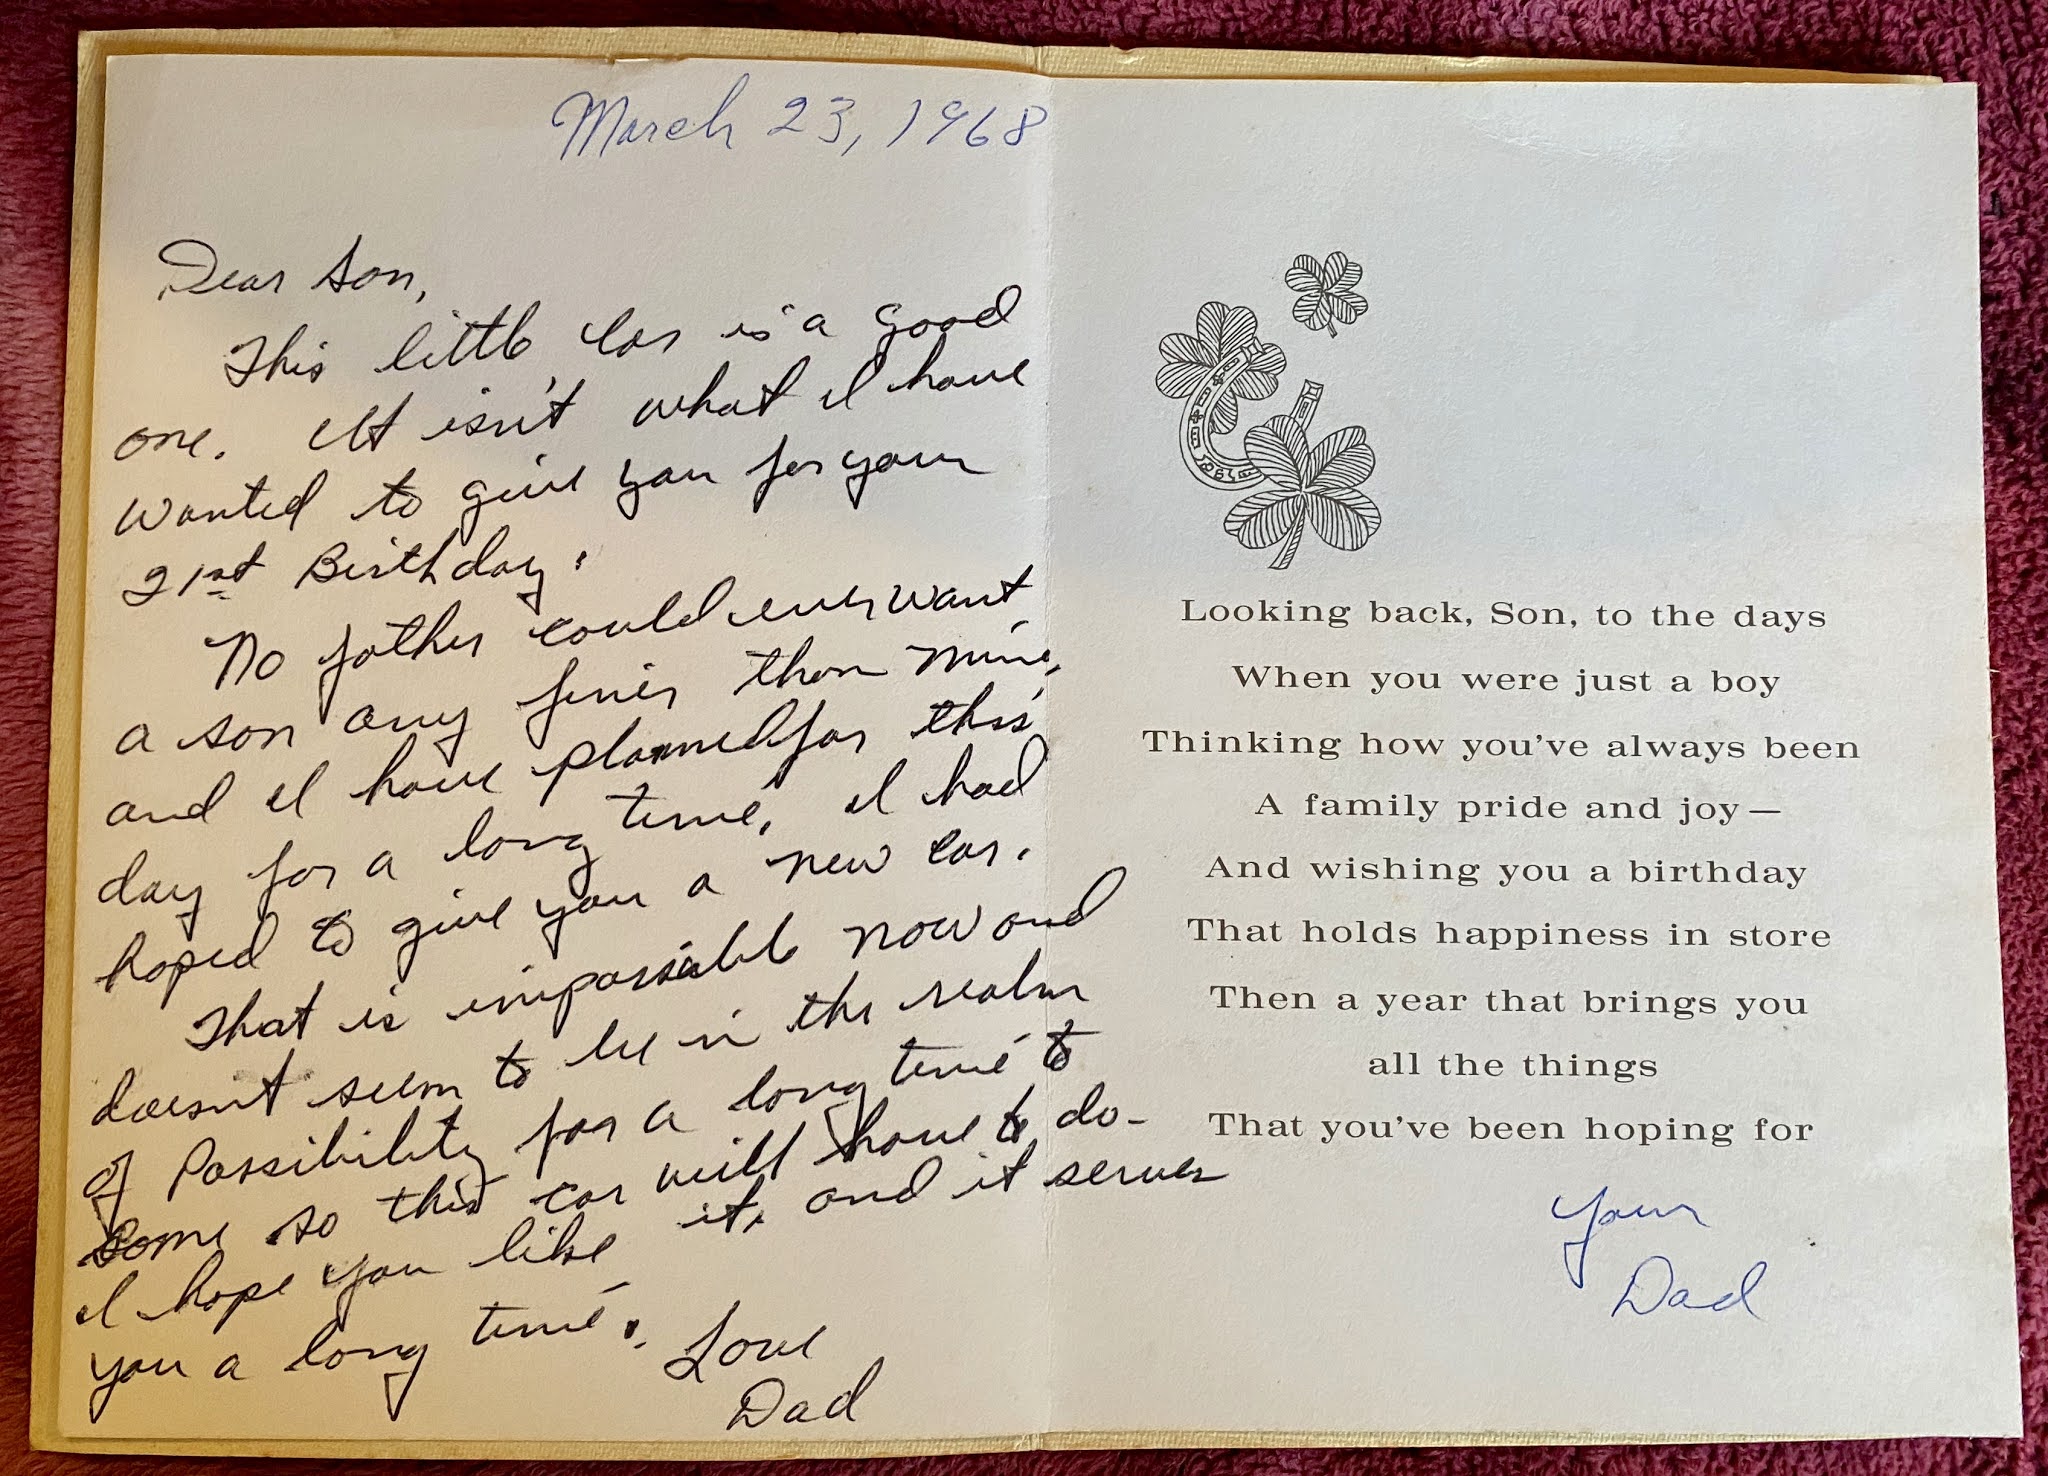 March 23, 1968
Dear Son,
This little car is a good
one. It isn't what I have
wanted to give you for your
21st Birthday.
No father could ever want
a son any finer than mine,
and I have planned for this
day for a long time. I had
hoped to give you a new car.
That is impossible now and
doesn't seem to be in the realm
of Possibility for a long time to
come so this car will have to do-
I hope you like it, and it serves
you a long time.
Love
Dad
Looking back, Son, to the days
When you were just a boy
Thinking how you've always been
A family pride and joy—
And wishing you a birthday
That holds happiness in store
Then a year that brings you
all the things
That you've been hoping for
Your
Dad